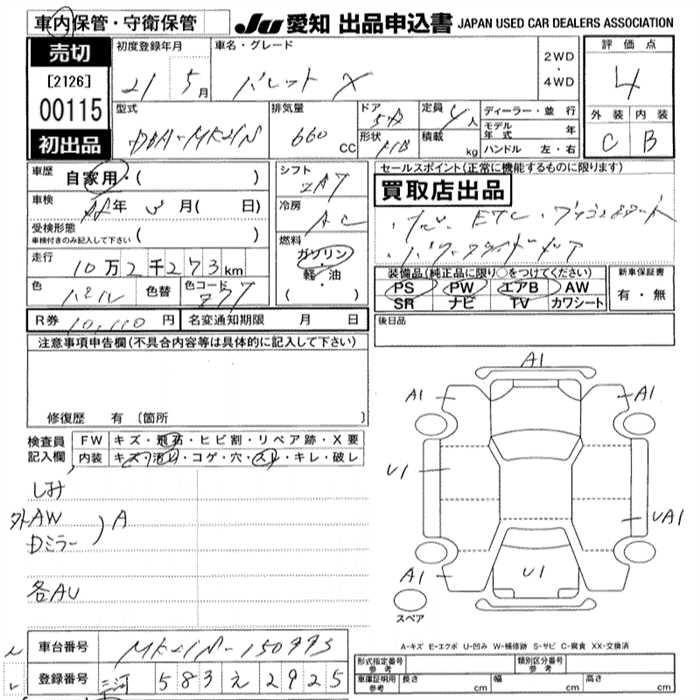 車内保管・守衛保管
JU 愛知 出品申込書 JAPAN USED CAR DEALERS ASSOCIATION
売切
[2126]
00115
初出品
初度登録年月
21 5月
車名・グレード
パレット X
2WD
・
4WD
評価点
4
外装 内装
C B
型式
DBA-MK21S
排気量
660 cc
ドア
5D
形状
HB
定員
4人
積載
kg
ディーラー・並行
モデル年式 年
ハンドル 左・右
車歴
自家用・( )
車検
年 月( 日)
受検形態
車検付きのみ記入して下さい ( )
走行
10万2千273km
色
パール
色替
色コード
Z7T
シフト
冷房
AC
燃料
ガソリン
・
軽・油
( )
セールスポイント(正常に機能するものに限ります)
買取店出品
・ナビ・ETC・プッシュスタート
・パワースライドドア
装備品(純正品に限り○をつけてください)
PS PW エアB AW
SR ナビ TV カワシート
新車保証書
有・無
R券 10,110円
名変通知期限 月 日
後日品
注意事項申告欄(不具合内容等は具体的に記入して下さい)
修復歴 有 〔箇所 〕
検査員記入欄
FW キズ・飛石・ヒビ割・リペア跡・X要
内装 キズ・汚レ・コゲ・穴・スレ・キレ・破レ
しみ
外AW
Dミラー
A
各AU
A1
A1
A1
U1
UA1
U1
A1
スペア
A-キズ E-エクボ U-凹み W-補修跡 S-サビ C-腐食 XX-交換済
車台番号
MK21S-150993
登録番号
三河 583 え 2925
形式指定番号 参考
類別区分番号 参考
車庫証明用 参考
長さ cm
幅 cm
高さ cm